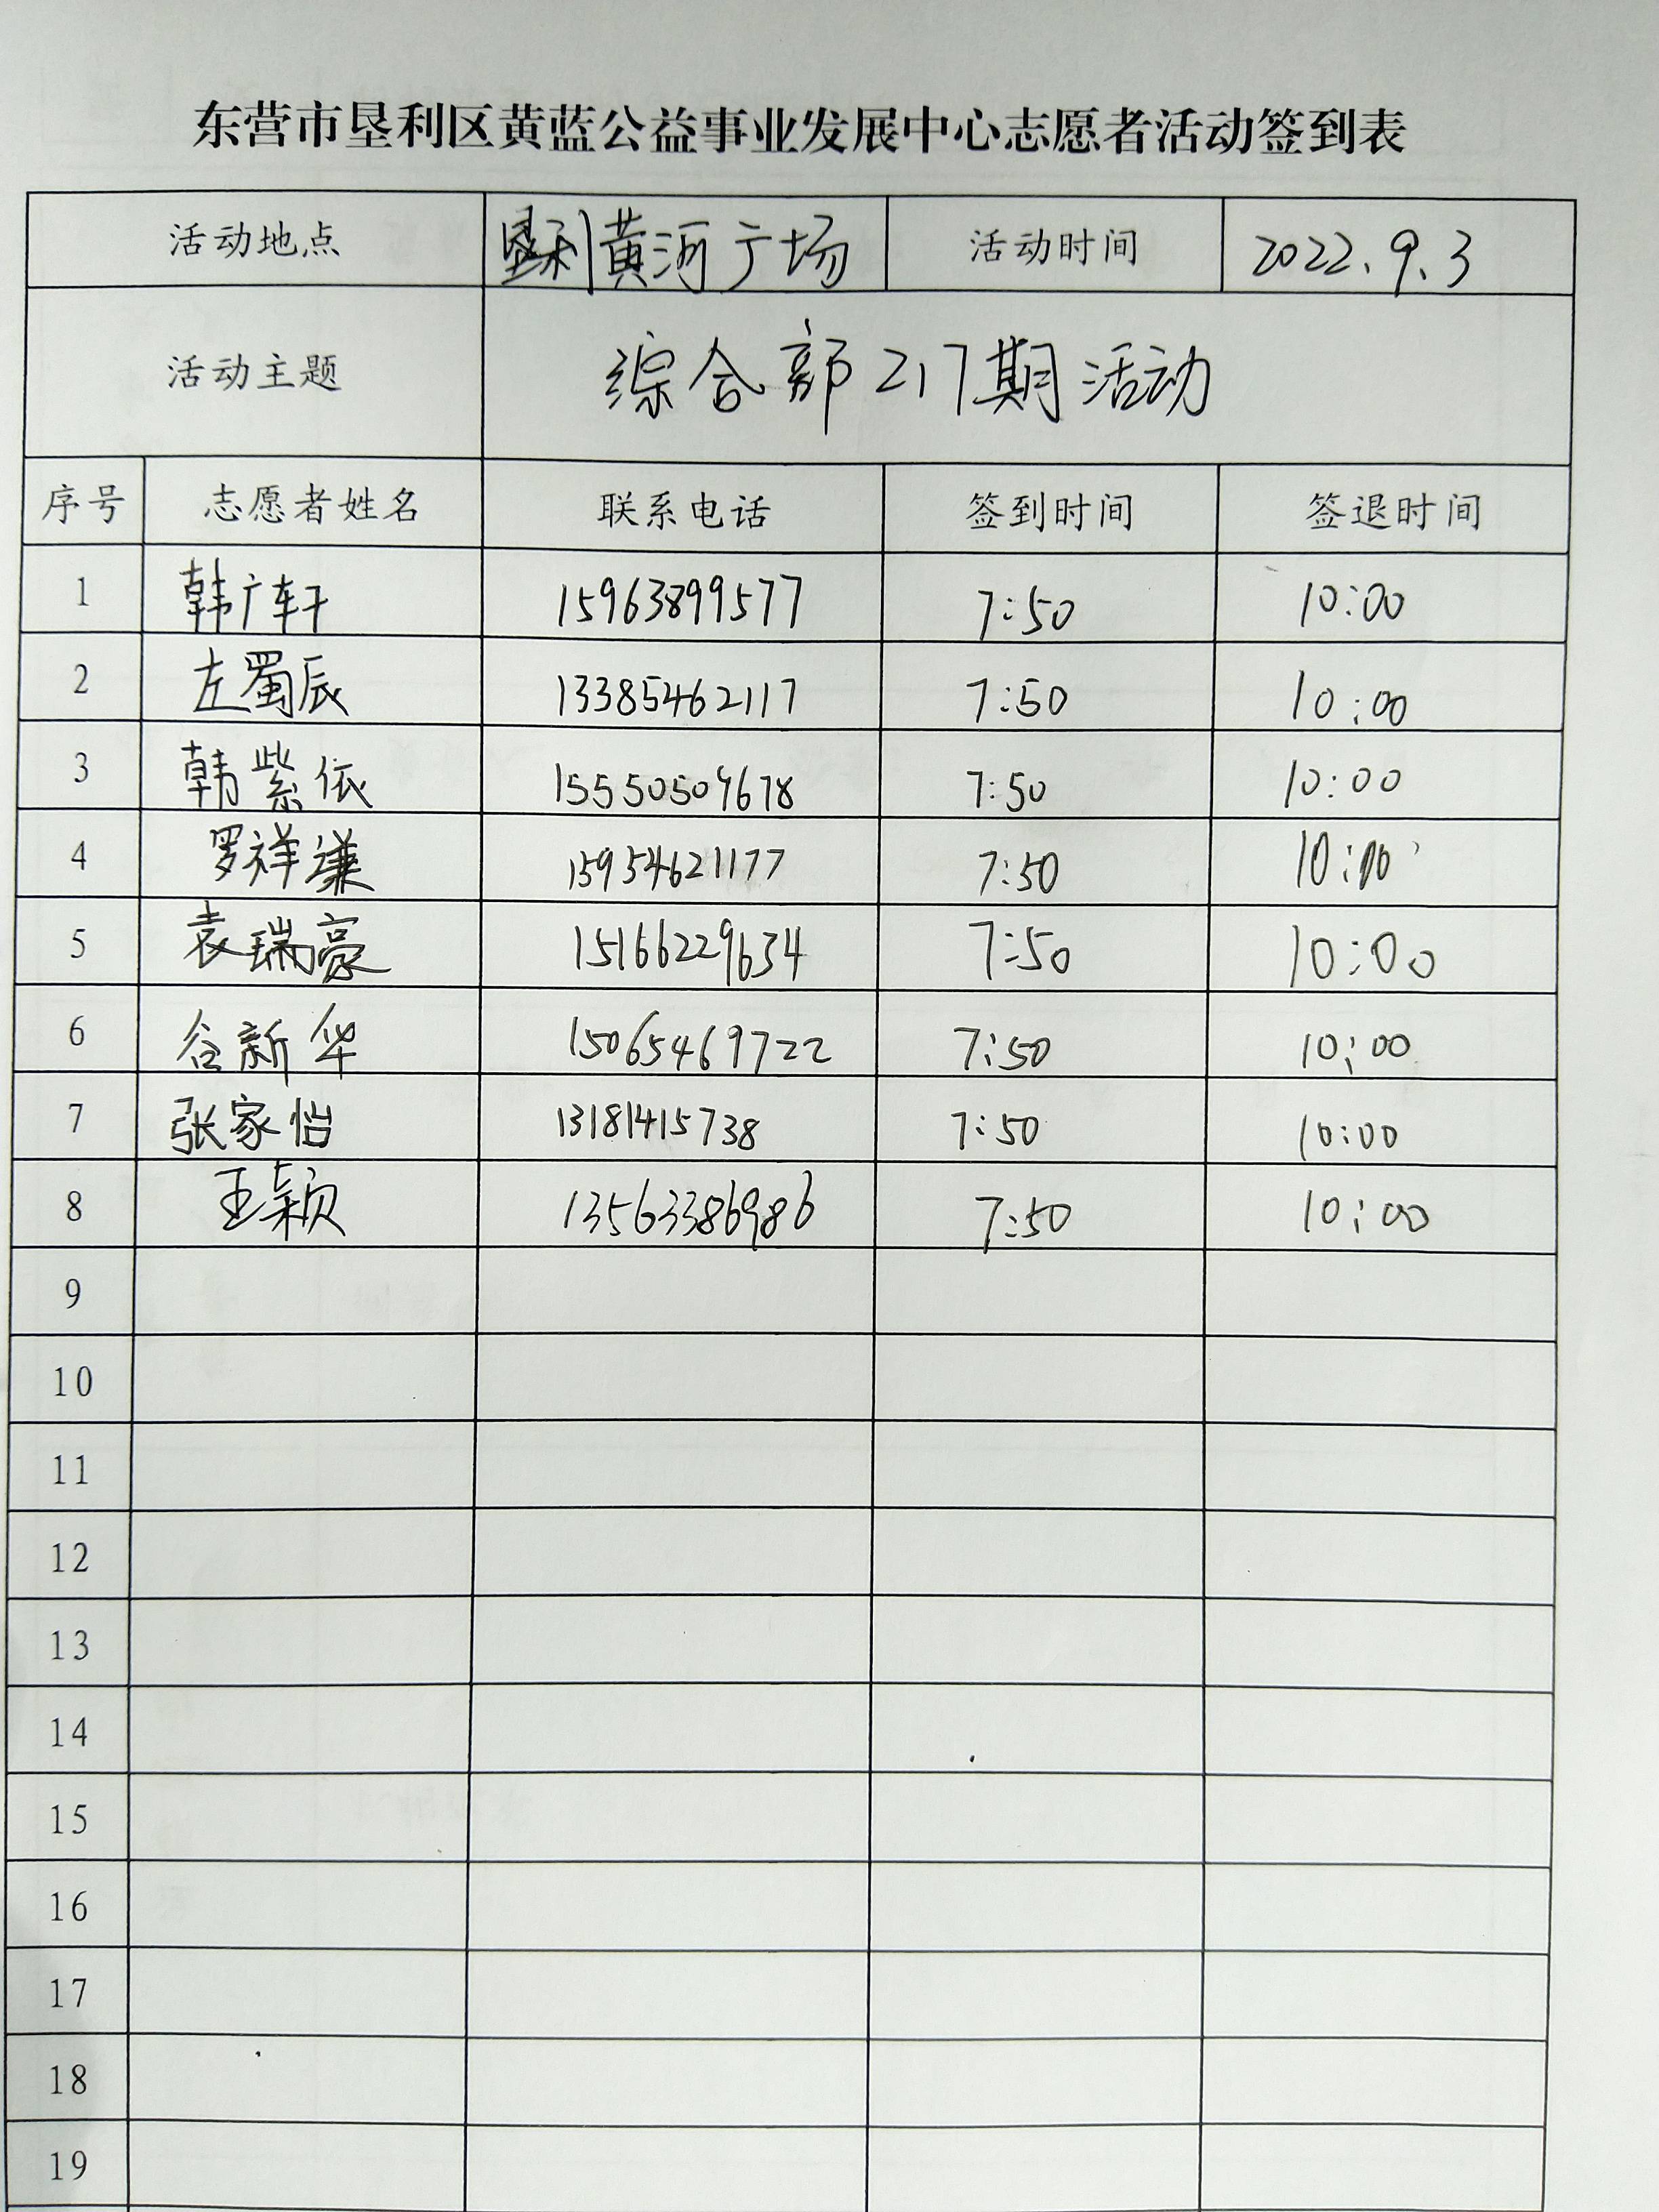 东营市垦利区黄蓝公益事业发展中心志愿者活动签到表
活动地点 垦利黄河广场 活动时间 2022.9.3
活动主题 综合部217期活动
序号 志愿者姓名 联系电话 签到时间 签退时间
1 韩广轩 15963899577 7:50 10:00
2 左蜀辰 13385462117 7:50 10:00
3 韩紫依 15550509678 7:50 10:00
4 罗祥谦 15954621177 7:50 10:00
5 袁瑞豪 15166229634 7:50 10:00
6 谷新华 15065469722 7:50 10:00
7 张家怡 13181415738 7:50 10:00
8 王颖 13563386986 7:50 10:00
9
10
11
12
13
14
15
16
17
18
19